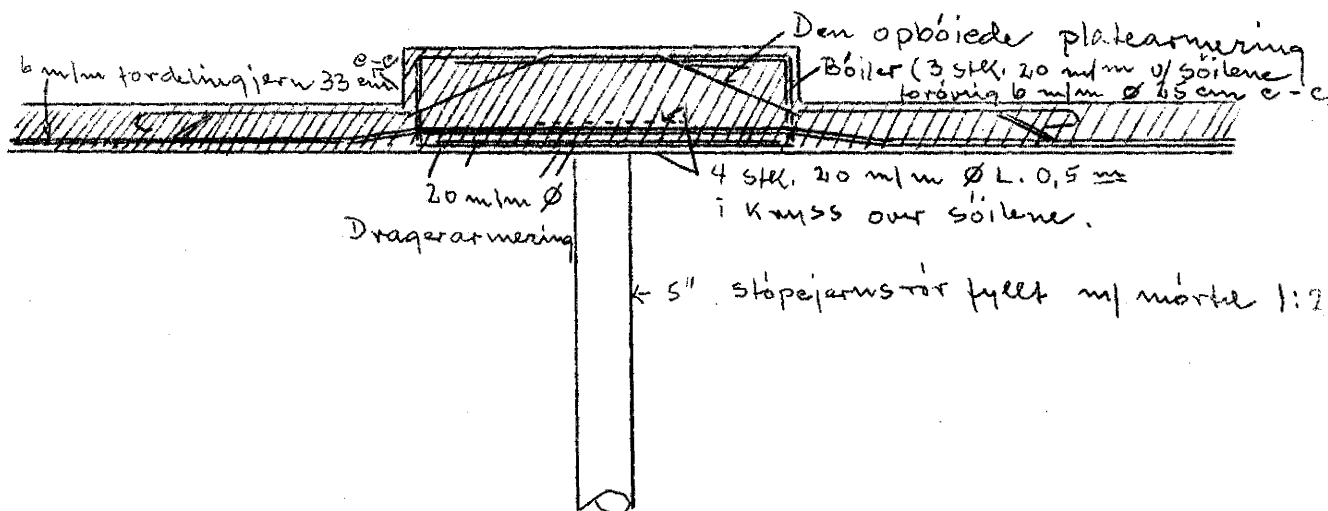 Den opbóiede platearmering
c-c
6 m/m fordelingjern 33 cm
Bóiler (3 stk. 20 m/m v/sóilene
foróvrig 6 m/m Ø 25 cm c-c
20 m/m Ø
Dragerarmering
4 stk. 20 m/m Ø L. 0,5 m
i Kryss over sóilene.
5" stópejernsrór fyllt m/ mórtel 1:2